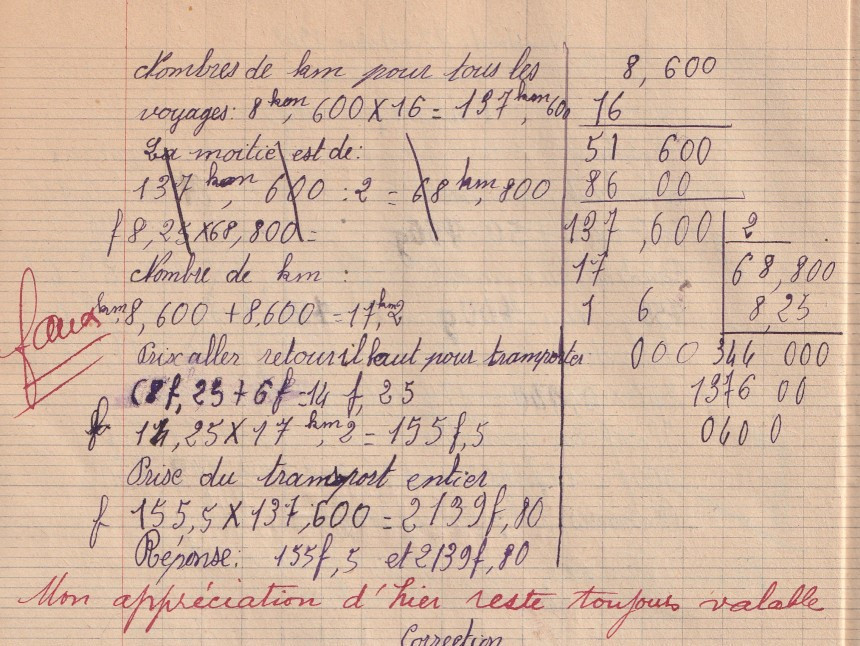 Nombres de km pour tous les
voyages: 8 km, 600 X 16 = 137 km, 600
La moitié est de:
137 km, 600 : 2 = 68 km, 800
f 8,25 X 68,800 =
Nombre de km :
km 8,600 + 8,600 = 17 km 2
Prix aller retour il faut pour tramporter
(8f,25 + 6f = 14 f, 25
fo 14,25 X 17 km, 2 = 155f,5
Prise du transport entier
f 155,5 X 137,600 = 2139f,80
Réponse: 155f,5 et 2139f,80
faux
8,600
16
51 600
86 00
137,600 2
17 68,800
1 6 8,25
000 344 000
1376 00
0400
Mon appréciation d'hier reste toujours valable
Correction